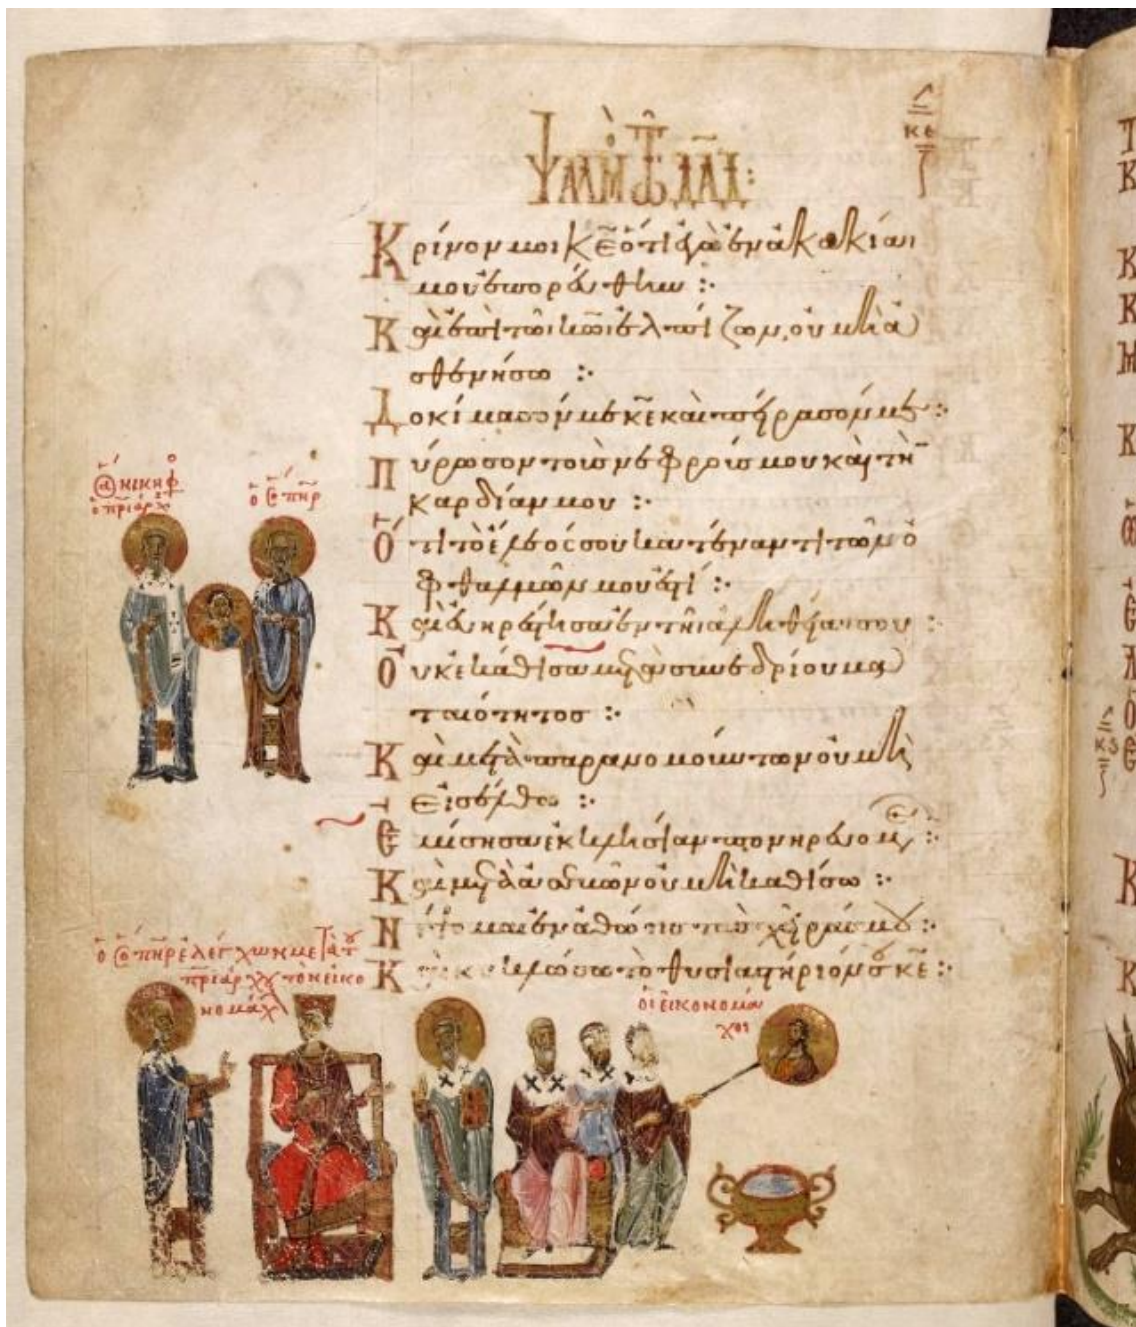 ΨΑΛΜ ΤΩ ΔΑΔ:
κε
Κρίνόν μοι κε ὅτι ἐγὼ ἐν ἀκακίαι
μου ἐπορεύθην :·
Καὶ ἐπὶ τῶι κωι ἐλπίζων, οὐ μὴ ἀ
σθενήσω :·
Δοκίμασόν με κε καὶ πείρασόν με :·
Πύρωσον τοὺς νεφρούς μου καὶ τὴν
καρδίαν μου :·
Ὅτι τὸ ἔλεός σου κατέναντι τῶν ὀ
φθαλμῶν μου ἐστί :·
Καὶ εὐηρέστησα ἐν τῆι ἀληθείαι σου :·
Οὐκ ἐκάθισα μετὰ συνεδρίου μα
ταιότητος :·
Καὶ μετὰ παρανομούντων οὐ μὴ
εἰσέλθω :·
Ἐμίσησα ἐκκλησίαν πονηρευομέ :·
Καὶ μετὰ ἀσεβῶν οὐ μὴ καθίσω :·
Νίψομαι ἐν ἀθώοις τὰς χεῖράς μου :·
Καὶ κυκλώσω τὸ θυσιαστήριόν σου κε :·
ὁ α νικηφο
ὁ πριάρχ
ὁ σ πηρ
ὁ ὁ πηρ ἐλέγχων μετὰ τοῦ
πριάρχου τὸν εἰκο
νομάχ
οἱ εἰκονομά
χοι
κς